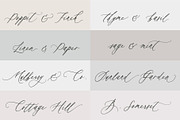 Poppet & Finch
Thyme & basil
Linen & Paper
sage & mint
Mulberry & Co
Overland Garden
Cottage Hill
B. Somerset